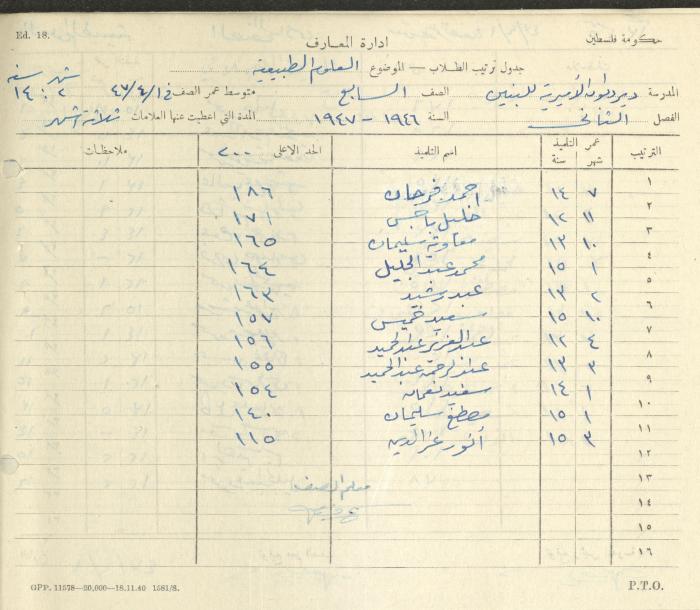 Ed. 18.
حكومة فلسطين
ادارة المعارف
جدول ترتيب الطلاب — الموضوع العلوم الطبيعية
المدرسة دير ديوان الأميرية للبنين الصف السابع متوسط عمر الصف في ٤٧/٤/١ شهر ٢ سنة ١٤
الفصل الثاني السنة ١٩٤٦ - ١٩٤٧ المدة التي اعطيت عنها العلامات ثلاثة أشهر
الترتيب عمر التلميذ شهر سنة اسم التلميذ الحد الاعلى ٢٠٠ ملاحظات
١ ٧ ١٤ احمد فرحان ١٨٦
٢ ١١ ١٢ خليل ياحس ١٧١
٣ ١٠ ١٣ معاوية سليمان ١٦٥
٤ ١ ١٥ محمد عبد الجليل ١٦٤
٥ ٢ ١٣ عبد رشيد ١٦٣
٦ ١٠ ١٥ سعيد خميس ١٥٧
٧ ٤ ١٢ عبد العزيز عبد الحميد ١٥٦
٨ ٣ ١٣ عبد الرحمن عبد الحميد ١٥٥
٩ ١ ١٤ سعيد نعمان ١٥٤
١٠ ١ ١٥ مصطفى سليمان ١٤٠
١١ ٣ ١٥ أنور عز الدين ١١٥
١٢
١٣ معلم الصف
١٤
١٥
١٦
GPP. 11578—20,000—18.11.40 1581/S.
P.T.O.